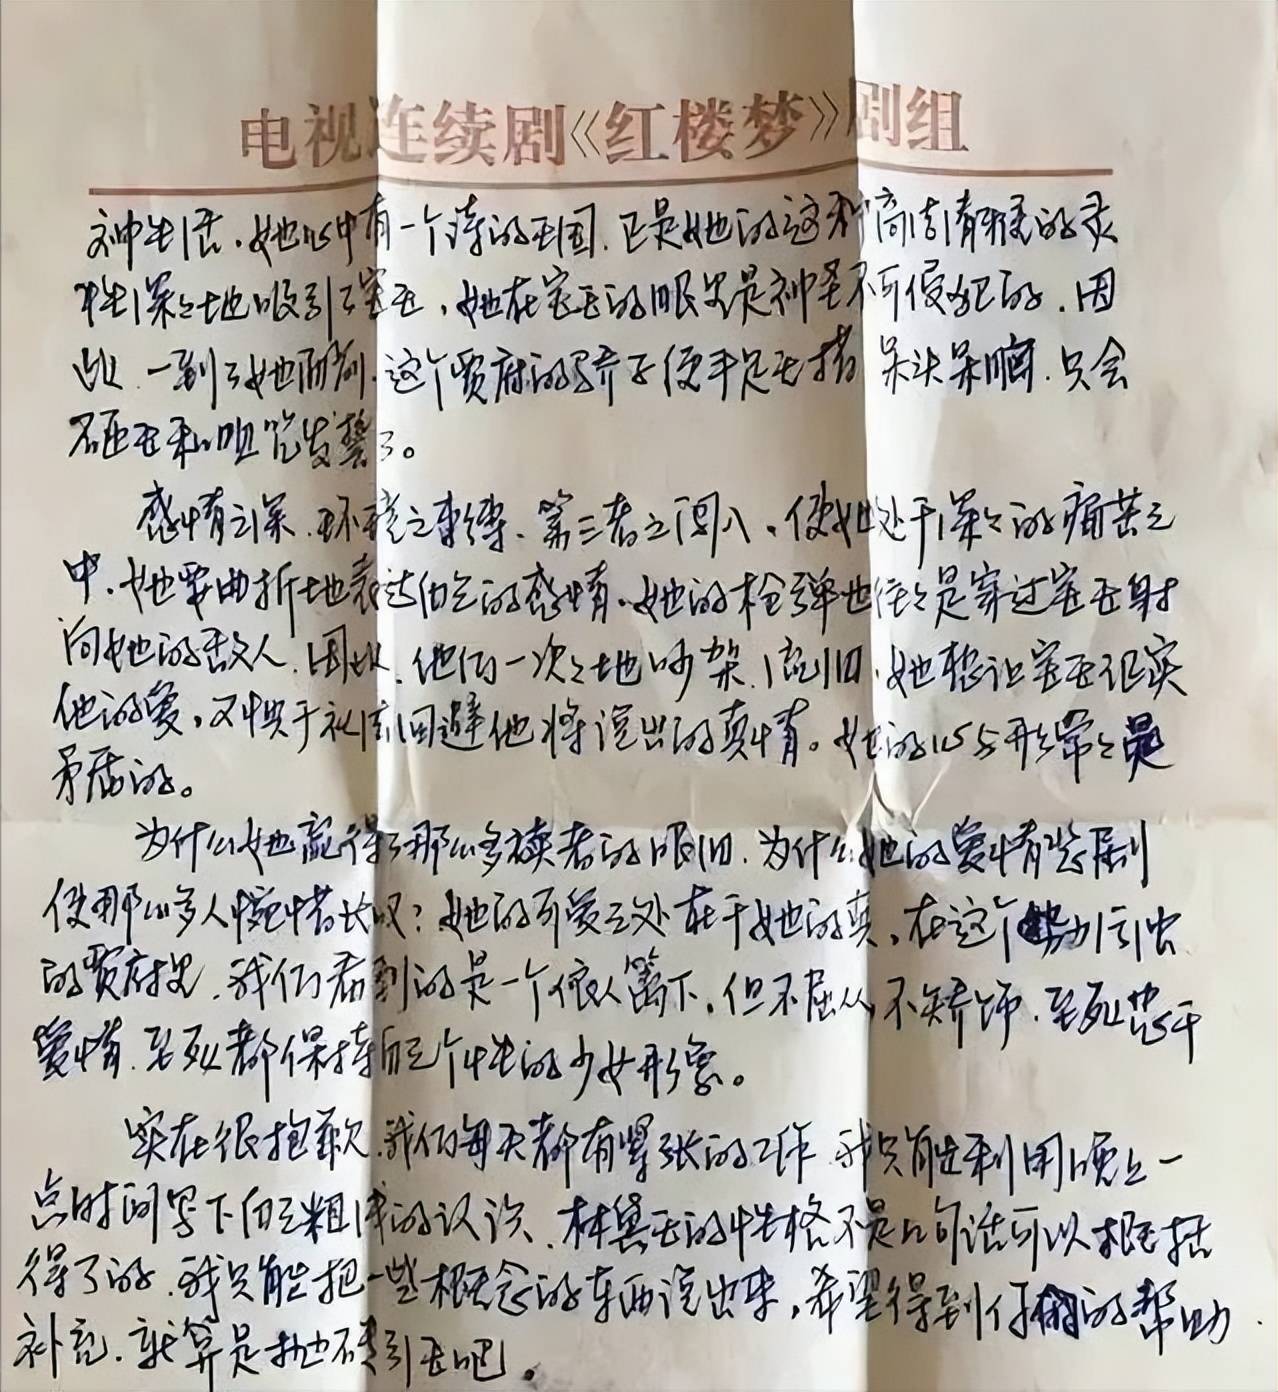 电视连续剧《红楼梦》剧组
神生活，她心中有一个诗的王国，正是她的这种高洁清雅的灵
性深深地吸引了宝玉，她在宝玉的眼里是神圣不可侵犯的，因
此，一到了她面前，这个贾府的骄子便手足无措，呆头呆脑，只会
砸玉和咀咒发誓了。
感情之深，环境之束缚，第三者之闯入，使她处于深深的痛苦之
中，她要曲折地表达自己的感情，她的枪弹也往往是穿过宝玉射
向她的敌人，因此，他们一次次地吵架、流泪，她想让宝玉证实
他的爱，又惧于礼法回避他将说出的真情。她的心与形常常是
矛盾的。
为什么她赢得了那么多读者的眼泪，为什么她的爱情悲剧
使那么多人惋惜长叹？她的可爱之处在于她的真，在这个势力
的贾府里，我们看到的是一个依人篱下，但不屈从，不矫饰，至死忠于
爱情，至死都保持自己个性的少女形象。
实在很抱歉，我们每天都有紧张的工作，我只能利用晚上一
点时间写下自己粗浅的认识，林黛玉的性格不是几句话可以概括
得了的，我只能把一些概念的东西说出来，希望得到你们的帮助，
补充，就算是抛砖引玉吧。